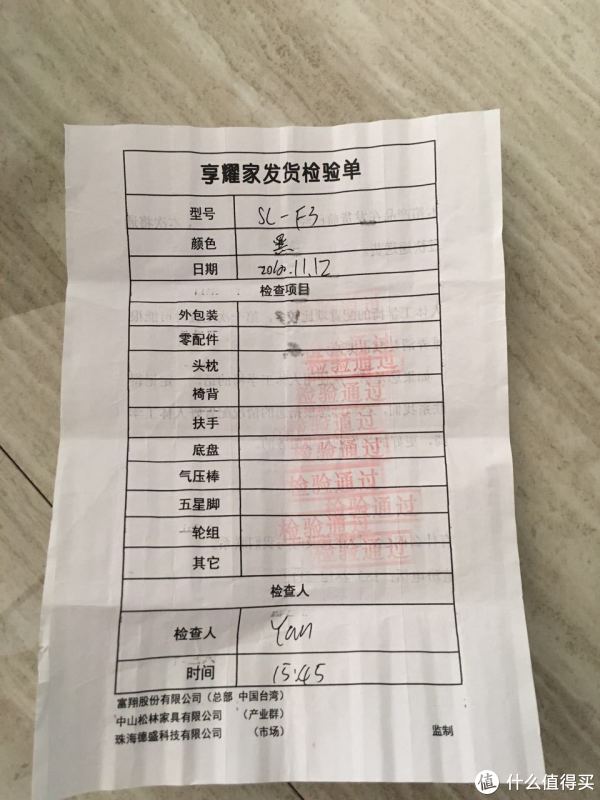 享耀家发货检验单
型号 SL-F3
颜色 黑
日期 2016.11.12
检查项目
外包装
零配件
头枕 检验通过
椅背 检验通过
扶手 检验通过
底盘 检验通过
气压棒 检验通过
五星脚 检验通过
轮组 检验通过
其它 检验通过
检查人
检查人 Yan
时间 15:45
富翔股份有限公司（总部 中国台湾）
中山松林家具有限公司 （产业群）
珠海德盛科技有限公司 （市场） 监制
值 什么值得买